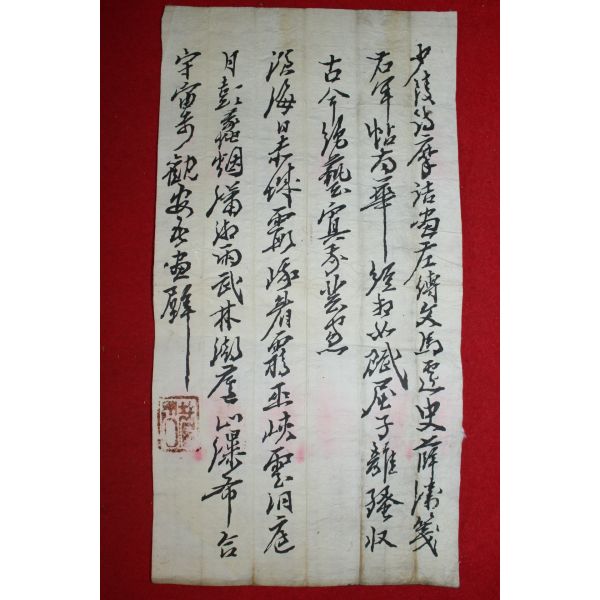 少陵詩摩詰畵左傳文馬遷史薛濤箋
右軍帖南華經相如賦屈子離騷收
古今絶藝寘我芸窓
滄海日赤城霞峨眉霧巫峽雲洞庭
月彭蠡烟瀟湘雨武林廬山瀑布合
宇宙奇觀安吾畵壁